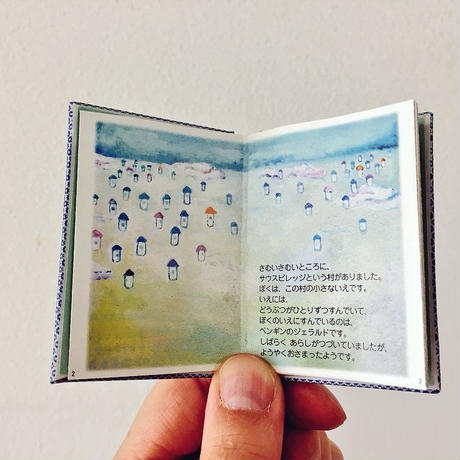 さむいさむいところに、
サウスビレッジという村がありました。
ぼくは、この村の小さないえです。
いえには、
どうぶつがひとりずつすんでいて、
ぼくのいえにすんでいるのは、
ペンギンのジェラルドです。
しばらく あらしがつづいていましたが、
ようやくおさまったようです。
2
3